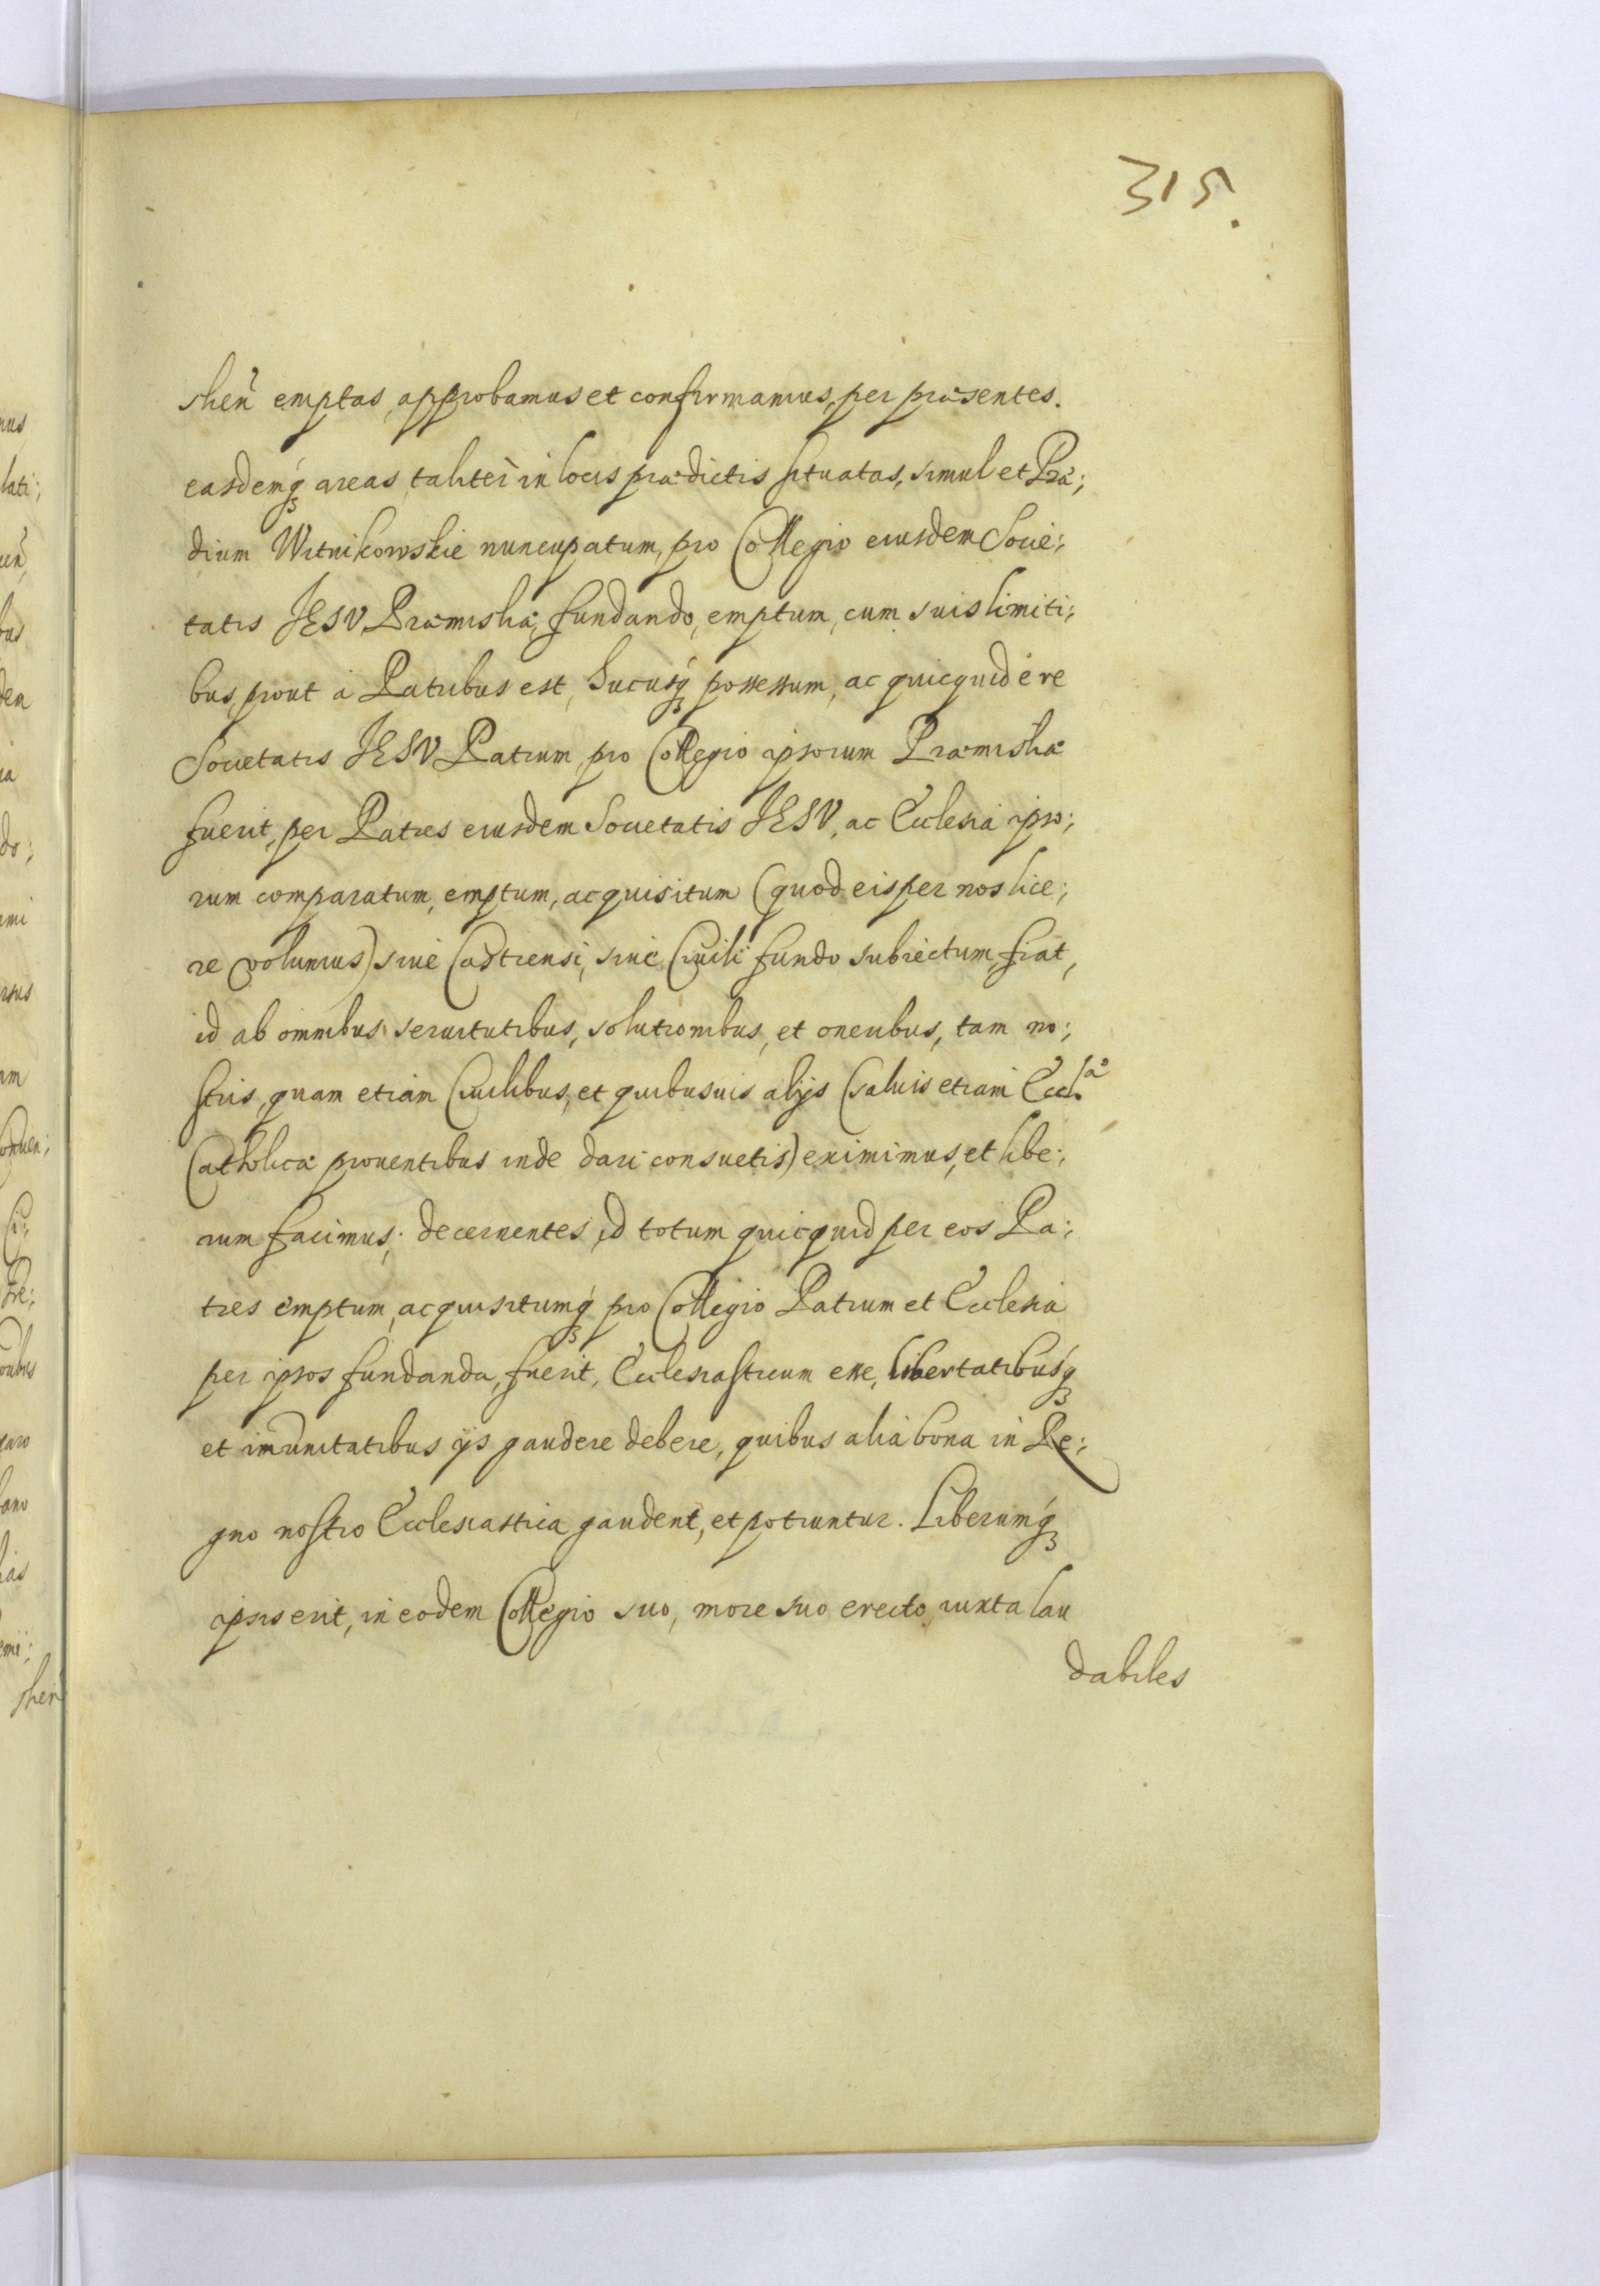 315.
slien̄ emptas, approbamus et confirmamus, per præsentes.
easdemq́ȝ areas, taliter in locis prædictis situatas, simul et Præ;
dium Witnikowskie nuncupatum, pro Collegio eiusdem Socie;
tatis JESV Præmisliæ, fundando, emptum, cum suis limiti;
bus, prout à Patribus est, hucusq́ȝ possessum, ac quicquid è re
Societatis JESV Patrum, pro Collegio ipsorum Præmisliæ
fuerit, per Patres eiusdem Societatis JESV, ac Ecclesia ipso;
rum comparatum, emptum, acquisitum (quod eis per nos lice;
re volumus) siue Castrensi, siue Ciuili fundo subiectum, fiat,
id ab omnibus seruitutibus, solutionibus, et oneribus, tam no;
stris, quam etiam Ciuilibus, et quibusuis alijs (saluis etiam Eccl.læ
Catholicæ prouentibus inde dari consuetis) eximimus, et libe;
rum facimus; decernentes, id totum quicquid per eos Pa;
tres emptum, acquisitumq́ȝ pro Collegio Patrum et Ecclesia
per ipsos fundanda, fuerit, Ecclesiasticum esse, libertatibusq́ȝ
et im̄unitatibus ijs gaudere debere, quibus alia bona in Re;
gno nostro Ecclesiastica gaudent, et potiuntur. Liberumq́ȝ
ipsis erit, in eodem Collegio suo, more suo erecto, iuxta lau
dabiles